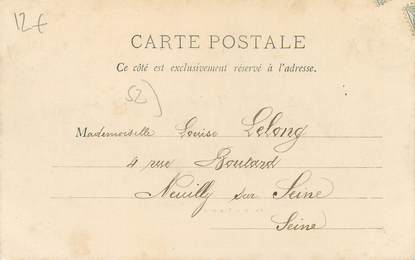 12€
CARTE POSTALE
Ce côté est exclusivement réservé à l'adresse.
52)
Mademoiselle Louise Lelong
4 rue Boutard
Neuilly sur Seine
Seine